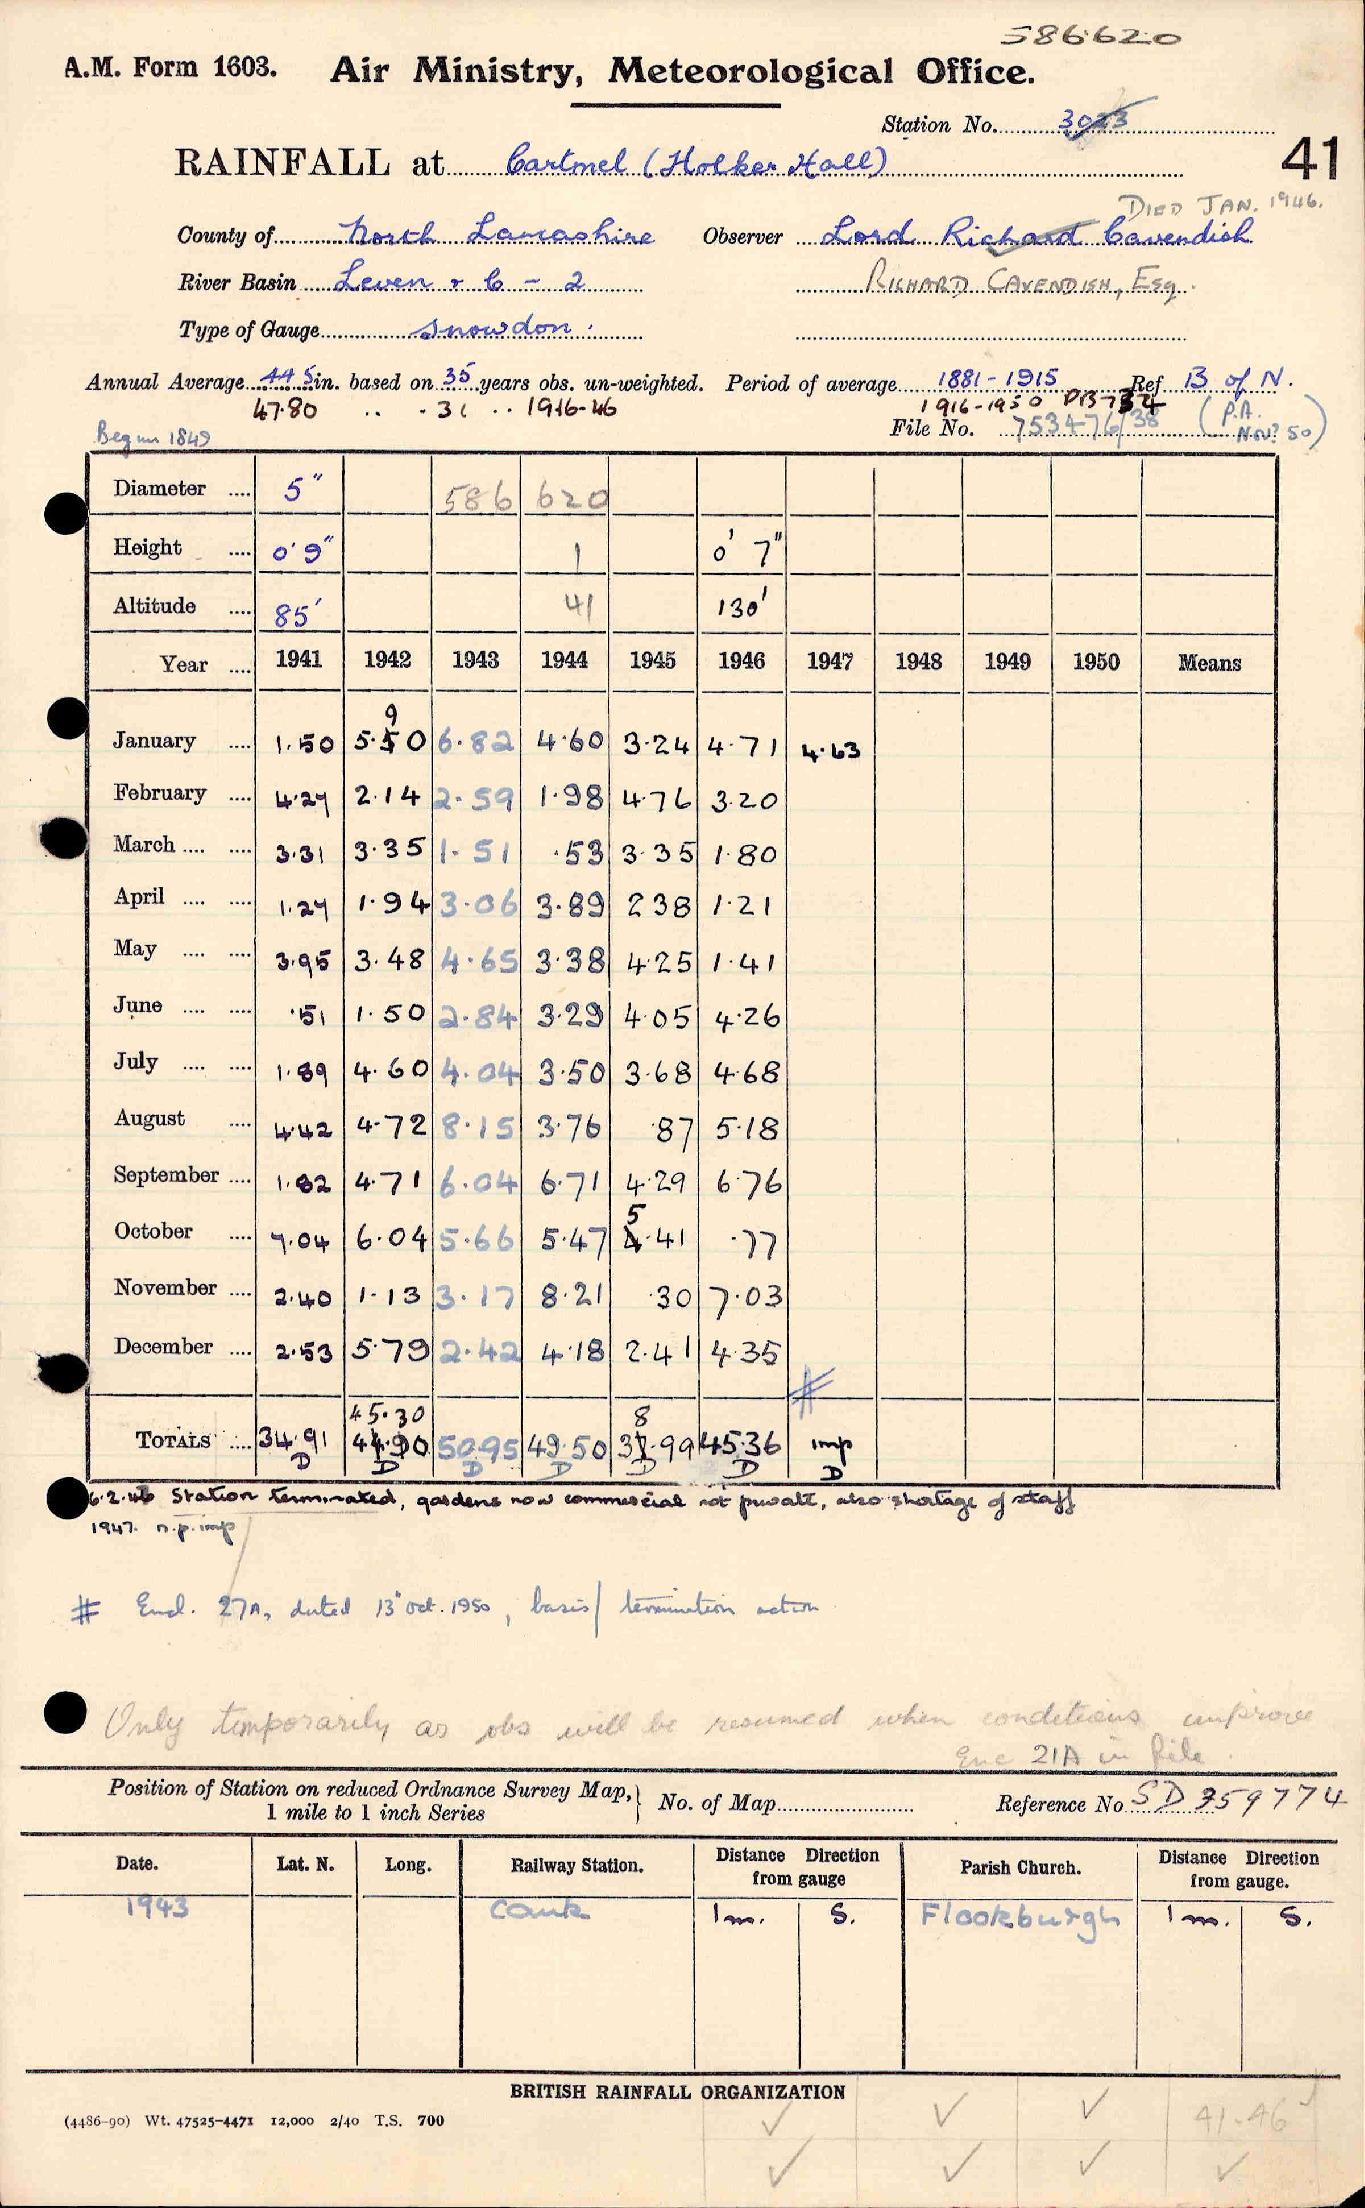 586620
A.M. Form 1603. Air Ministry, Meteorological Office.
Station No. 3023
41
RAINFALL at Cartmel (Holker Hall)
DIED JAN. 1946.
County of North Lancashire Observer Lord Richard Cavendish
River Basin Leven & C - 2 RICHARD CAVENDISH, Esq.
Type of Gauge Snowdon.
Annual Average 44.5 in. based on 35 years obs. un-weighted. Period of average 1881-1915 Ref B of N.
47.80 .. .31 .. 1916-46 1916-1950 (P.A.
Begun 1849 File No. 753476/38 Nov? 50)
Diameter .... 5" 586 620
Height .... 0' 9" 1 0' 7"
Altitude .... 85' 41 130'
Year .... 1941 1942 1943 1944 1945 1946 1947 1948 1949 1950 Means
9
January .... 1.50 5.50 6.82 4.60 3.24 4.71 4.63
February .... 4.27 2.14 2.59 1.98 4.76 3.20
March .... .... 3.31 3.35 1.51 .53 3.35 1.80
April .... .... 1.27 1.94 3.06 3.89 2 38 1.21
May .... .... 3.95 3.48 4.65 3.38 4.25 1.41
June .... .... .51 1.50 2.84 3.29 4.05 4.26
July .... .... 1.89 4.60 4.04 3.50 3.68 4.68
August .... 4.42 4.72 8.15 3.76 .87 5.18
September .... 1.82 4.71 6.04 6.71 4.29 6.76
5
October .... 7.04 6.04 5.66 5.47 4.41 .77
November .... 2.40 1.13 3.17 8.21 .30 7.03
December .... 2.53 5.79 2.42 4.18 2.41 4.35
#
45.30 8
TOTALS .... 34.91 44.90 50.95 49.50 37.99 45.36 imp
D D D D D D D
6.2.46 Station terminated, gardens now commercial not private, also shortage of staff
1947. n.p. imp
# Encl. 27A, dated 13 Oct. 1950, basis/ termination action
Only temporarily as obs will be resumed when conditions improve
Enc 21A in file.
Position of Station on reduced Ordnance Survey Map,} No. of Map Reference No SD 359774
1 mile to 1 inch Series
Date. Lat. N. Long. Railway Station. Distance Direction from gauge Parish Church. Distance Direction from gauge.
1943 Cark 1m. S. Flookburgh 1m. S.
BRITISH RAINFALL ORGANIZATION
(4486-90) Wt. 47525-4471 12,000 2/40 T.S. 700
41-46